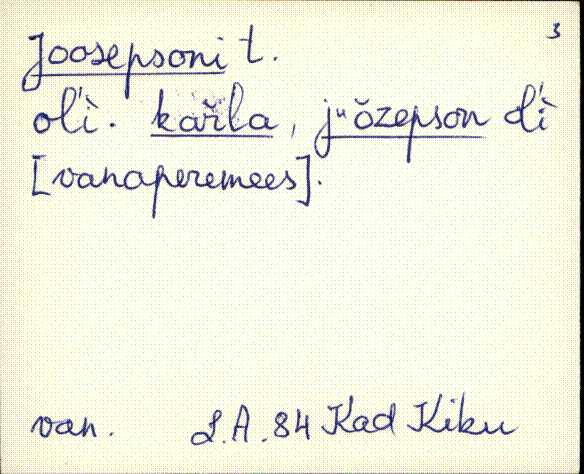 3
Joosepsoni t.
ol'ì. kařla, jᵘŏzepson ol'ì
[vanaperemees].
van. L.A. 84 Kad Kiku